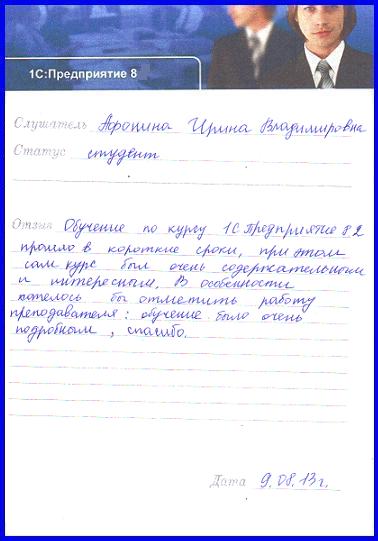 1С:Предприятие 8
Слушатель Афонина Ирина Владимировна
Статус студент
Отзыв Обучение по курсу 1С Предприятие 8.2
прошло в короткие сроки, при этом
сам курс был очень содержательным
и интересным. В особенности
хотелось бы отметить работу
преподавателя: обучение было очень
подробным, спасибо.
Дата 9.08.13г.